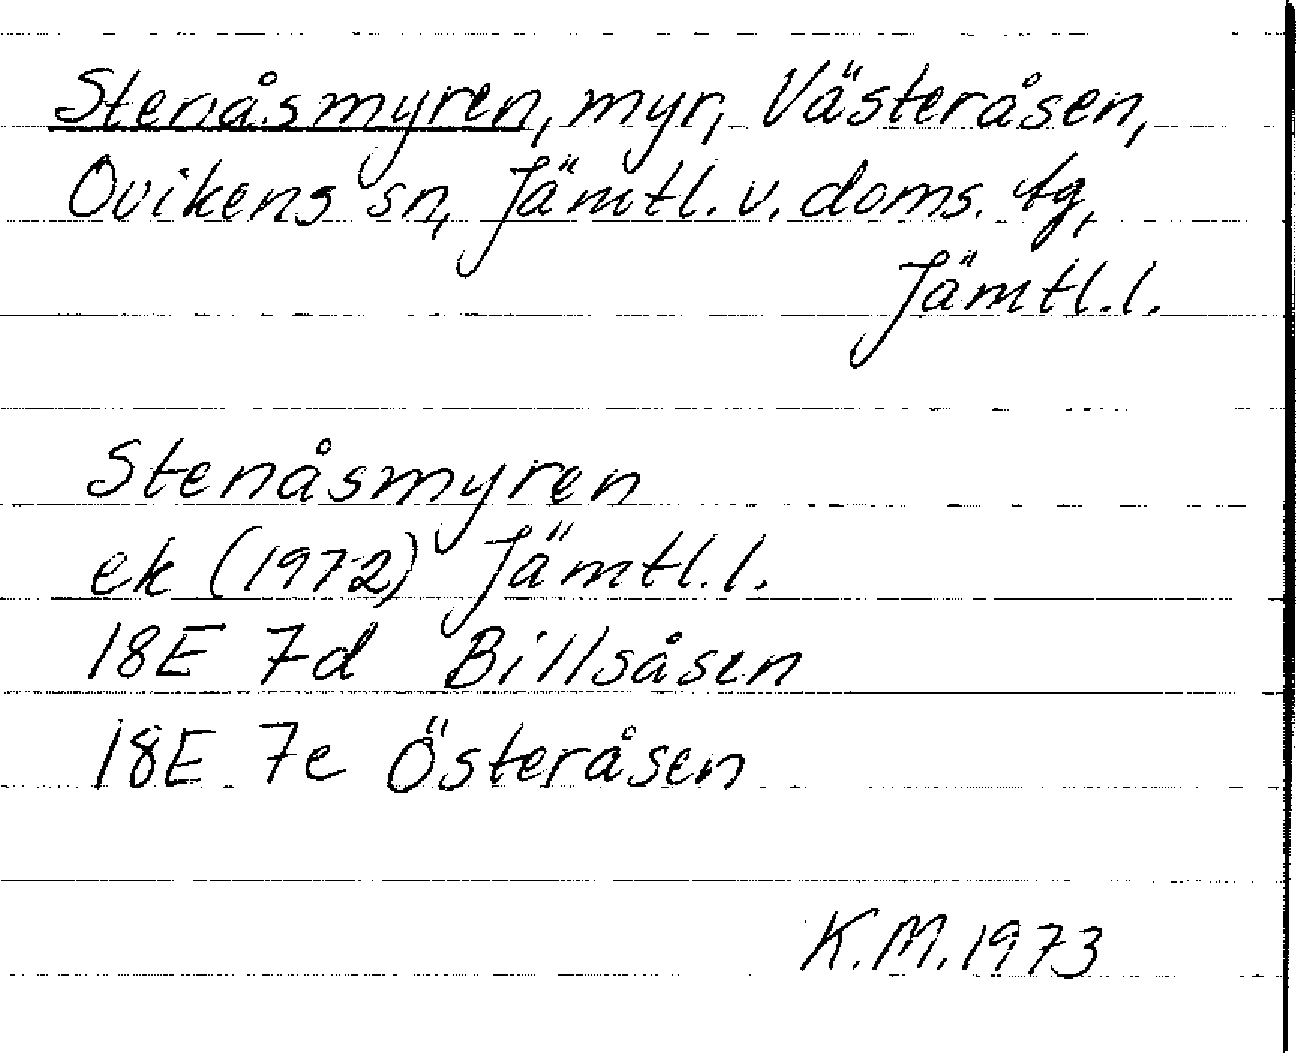 Stenåsmyren, myr, Västeråsen,
Ovikens sn, Jämtl. v. doms. tg,
Jämtl.l.
Stenåsmyren
ek (1972) Jämtl.l.
18E 7d Billsåsen
18E 7e Österåsen
K.M. 1973